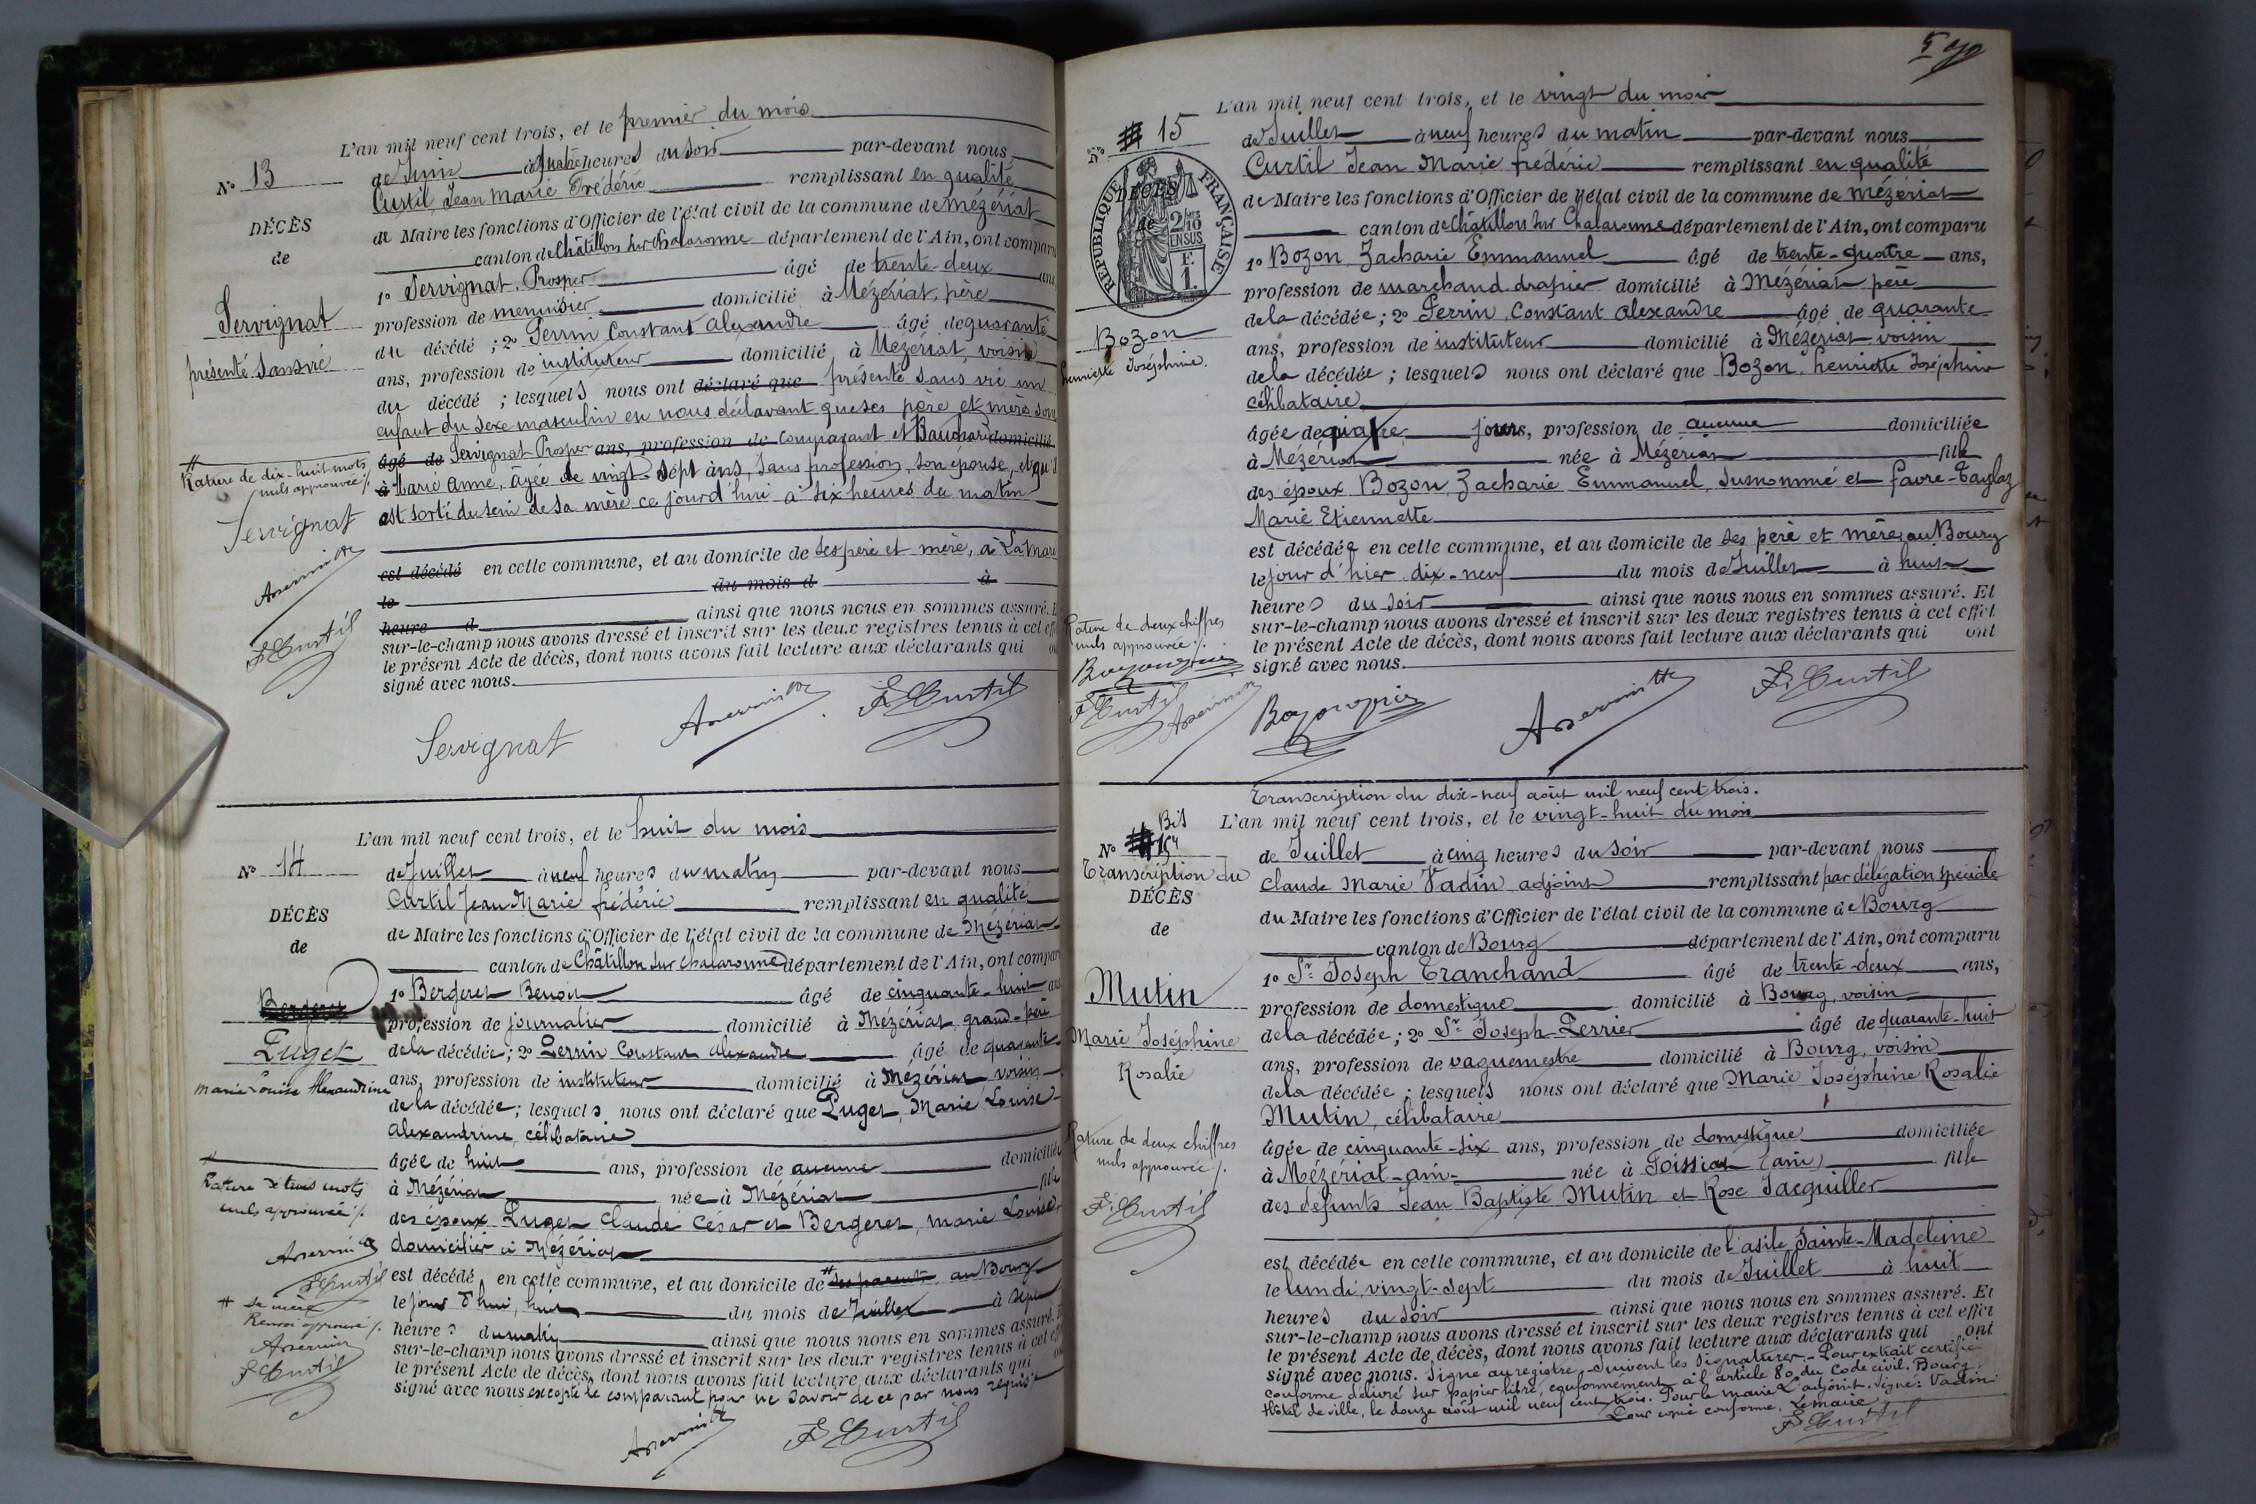 L'an mil neuf cent trois, et le premier du mois
N° 13
de Juin à quatre heures du soir par-devant nous
Curtil, Jean Marie Frédéric remplissant en qualité
DÉCÈS
de Maire les fonctions d'Officier de l'état civil de la commune de Mézériat
de
canton de Châtillon sur Chalaronne département de l'Ain, ont comparu
1° Servignat, Prosper âgé de trente-deux ans
Servignat
profession de menuisier domicilié à Mézériat, père
présenté sans vie
du décédé ; 2° Perrin Constant Alexandre âgé de quarante
ans, profession de instituteur domicilié à Mézériat, voisin
du décédé ; lesquels nous ont déclaré que présenté sans vie un
enfant du sexe masculin en nous déclarant que ses père et mère sont
âgé de Servignat Prosper ans, profession de comparant et Bauchard domicilié
à Marie Anne, âgée de vingt-sept ans, sans profession, son épouse, et qu'il
est sorti du sein de sa mère ce jourd'hui à six heures du matin
Rature de dix-huit mots
nuls approuvée /.
Servignat
est décédé en cette commune, et au domicile de ses père et mère, à La Mare
le du mois d à
heure d ainsi que nous nous en sommes assuré. Et
sur-le-champ nous avons dressé et inscrit sur les deux registres tenus à cet effet
le présent Acte de décès, dont nous avons fait lecture aux déclarants qui
signé avec nous.
F. Curtil
Servignat
F. Curtil
L'an mil neuf cent trois, et le huit du mois
N° 14
de Juillet à neuf heures du matin par-devant nous
Curtil Jean Marie frédéric remplissant en qualité
DÉCÈS
de Maire les fonctions d'Officier de l'état civil de la commune de Mézériat
de
canton de Châtillon sur Chalaronne département de l'Ain, ont comparu
Bergeret
1° Bergeret Benoit âgé de cinquante-huit ans
profession de journalier domicilié à Mézériat, grand-père
Puget
de la décédée ; 2° Perrin Constant Alexandre âgé de quarante
Marie Louise Alexandrine
ans, profession de instituteur domicilié à Mézériat voisin
de la décédée ; lesquels nous ont déclaré que Puget, Marie Louise
Alexandrine, célibataire
âgée de huit ans, profession de aucune domiciliée
à Mézériat née à Mézériat fille
des époux Puget Claude César et Bergeret, Marie Louise,
domiciliés à Mézériat
Rature de trois mots
nuls approuvée /.
F. Curtil
est décédé en cette commune, et au domicile de # ses parents, au Bourg
# sa mère
Renvoi approuvé /.
F. Curtil
le jour d'hui, huit du mois de Juillet à sept
heures du matin ainsi que nous nous en sommes assuré. Et
sur-le-champ nous avons dressé et inscrit sur les deux registres tenus à cet effet
le présent Acte de décès, dont nous avons fait lecture aux déclarants qui
signé avec nous excepté le comparant pour ne savoir de ce par nous requis
F. Curtil
L'an mil neuf cent trois, et le vingt du mois
N° 15
de Juillet à neuf heures du matin par-devant nous
Curtil Jean Marie frédéric remplissant en qualité
RÉPUBLIQUE FRANÇAISE
2/10 EN SUS
F. 1.
DÉCÈS
de
de Maire les fonctions d'Officier de l'état civil de la commune de Mézériat
canton de Châtillon sur Chalaronne département de l'Ain, ont comparu
1° Bozon, Zacharie Emmanuel âgé de trente-quatre ans,
profession de marchand drapier domicilié à Mézériat père
Bozon
henriette Joséphine.
de la décédée ; 2° Perrin, Constant Alexandre âgé de quarante
ans, profession de instituteur domicilié à Mézériat voisin
de la décédée ; lesquels nous ont déclaré que Bozon, henriette Joséphine
célibataire
âgée de quatre jours, profession de aucune domiciliée
à Mézériat née à Mézériat fille
des époux Bozon, Zacharie Emmanuel, susnommé et favre-Taylaz
Marie Etiennette
est décédée en cette commune, et au domicile de ses père et mère, au Bourg
le jour d'hier dix-neuf du mois de Juillet à huit
heures du soir ainsi que nous nous en sommes assuré. Et
sur-le-champ nous avons dressé et inscrit sur les deux registres tenus à cet effet
le présent Acte de décès, dont nous avons fait lecture aux déclarants qui ont
signé avec nous.
Rature de deux chiffres
nuls approuvée /.
F. Curtil
F. Curtil
Transcription du dix-neuf août mil neuf cent trois.
L'an mil neuf cent trois, et le vingt-huit du mois
Bis
N° 15
Transcription du
DÉCÈS
de
de Juillet à cinq heures du soir par-devant nous
Claude Marie Vadin adjoint remplissant par délégation spéciale
du Maire les fonctions d'Officier de l'état civil de la commune de Bourg
canton de Bourg département de l'Ain, ont comparu
1° Sr Joseph Tranchand âgé de trente-deux ans,
Mutin
Marie Joséphine
Rosalie
profession de domestique domicilié à Bourg, voisin
de la décédée ; 2° Sr Joseph Perrier âgé de quarante-huit
ans, profession de vaguemestre domicilié à Bourg, voisin
de la décédée ; lesquels nous ont déclaré que Marie Joséphine Rosalie
Mutin, célibataire
âgée de cinquante-six ans, profession de domestique domiciliée
à Mézériat-ain- née à Foissiat (ain) fille
des défunts Jean Baptiste Mutin et Rose Jacquiller
Rature de deux chiffres
nuls approuvée /.
F. Curtil
est décédée en cette commune, et au domicile de l'asile Sainte-Madeleine
le lundi, vingt-sept du mois de Juillet à huit
heures du soir ainsi que nous nous en sommes assuré. Et
sur-le-champ nous avons dressé et inscrit sur les deux registres tenus à cet effet
le présent Acte de décès, dont nous avons fait lecture aux déclarants qui ont
signé avec nous. Signé au registre, Suivent les Signatures. Pour extrait certifié
conforme délivré sur papier libre, conformément à l'article 80 du Code civil. Bourg,
Hôtel de ville, le douze août mil neuf cent trois. Pour le maire L'adjoint. Signé : Vadin
Pour copie conforme, Le maire
F. Curtil